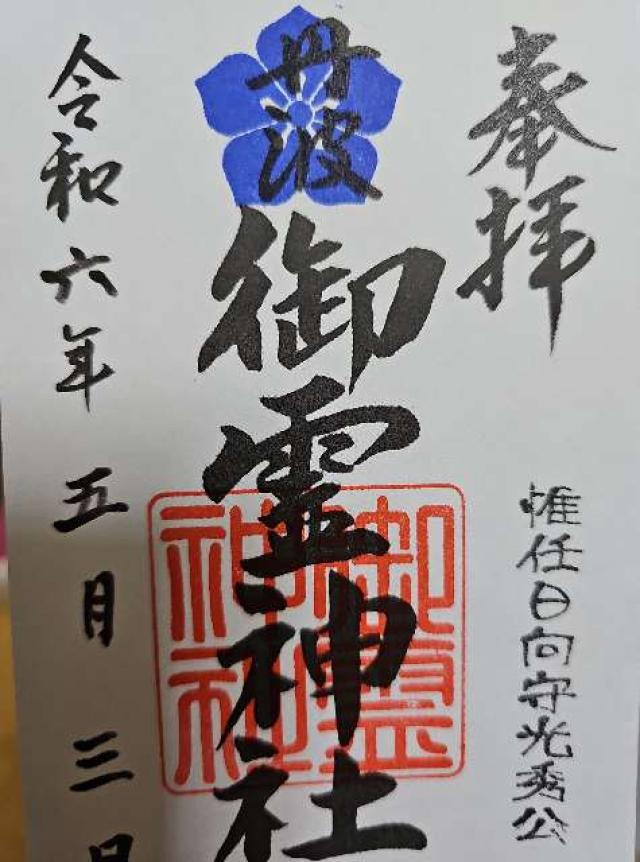 奉拝
惟任日向守光秀公
丹波
御霊神社
御霊神社
令和六年五月三日